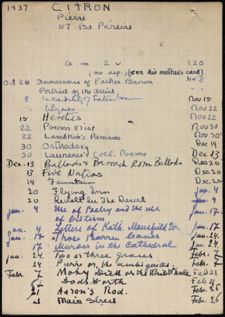 1937 CITRON
Pierre
57 Bd Péreire
6 m 2 v 120
(no dep.) (see his mother's card)
Oct 26 Innocence of Father Brown Nov 8
Portrait of the artist
8 Incredulity of Father Brown Nov 15
Ulysses Nov 22
15 Heretics Nov 22
22 Poems Eliot Nov 30
22 Landor's Nov 30
30 Orthodoxy
30 Lawrence's Coll. Poems Dec. 13
Dec. 13 Ballads & Barrack Room Ballads Dec 20
13 Five Nations Dec 20
14 Fountain
20 Flying Inn Jan. 4
20 Revolt in the Desert Jan. 4
Jan. 4 Use of Poetry and the use
of criticism Jan. 17
Jan. 4 Letters of Kath. Mansfield
Jan. 17 These Barren Leaves Jan. 24
Jan. 17 Murder in the Cathedral Jan. 24
Jan. 24 Two or three graces Feb. 7
Jan. 24 Feb. 7
Feb. 7 Moby Dick or the White Whale Feb 21
Feb. 7 Dodsworth
Aaron's Rod. Feb. 26
21 Main Street Feb. 26